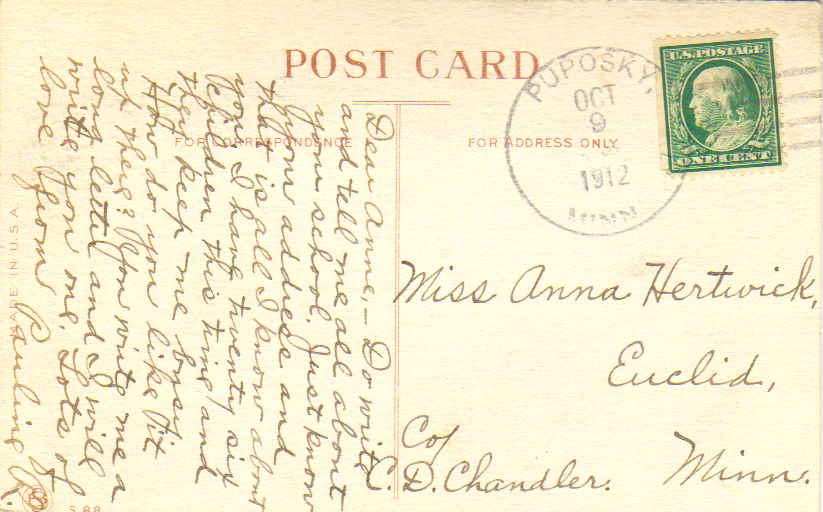 POST CARD
FOR CORRESPONDENCE
FOR ADDRESS ONLY
PUPOSKY,
OCT
9
1912
MINN
U.S. POSTAGE
ONE CENT
Miss Anna Hertwick,
Euclid,
Minn.
Co/
C. D. Chandler.
Dear Anne, - Do write
and tell me all about
your school. Just know
your address and
that is all I know about
you. I have twenty six
children this time and
they keep me busy
How do you like it
up there? You write me a
long letter and I will
write you one. Lots of
love from
Pauline K.
MADE IN U.S.A.
S 88